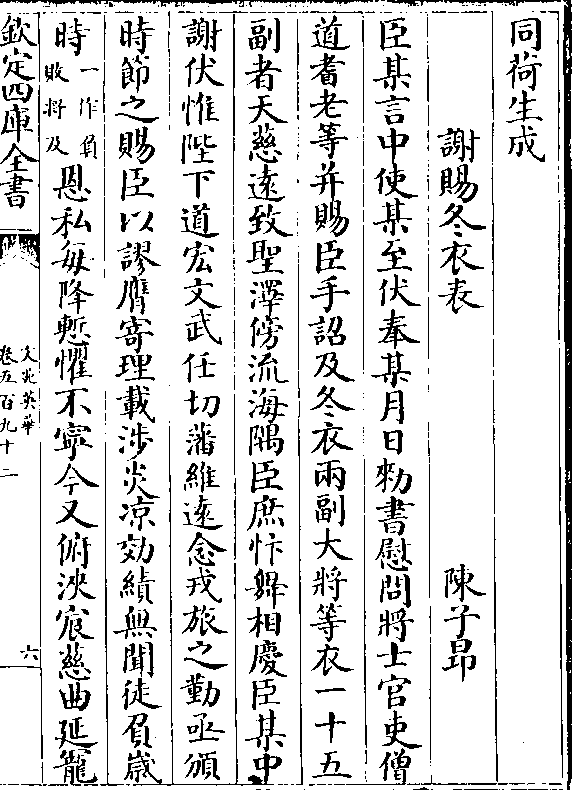 同荷生成
謝賜冬衣表 陳子昂
臣某言中使某至伏奉某月日勑書慰問將士官吏僧
道耆老等并賜臣手詔及冬衣兩副大將等衣一十五
副者天慈遠致聖澤傍流海隅臣庶忭舞相慶臣某中
謝伏惟陛下道宏文武任切藩維遠念戎旅之勤亟頒
時節之賜臣以謬膺寄理載渉炎凉効績無聞徒負歲
時一作負敗將及恩私每降慙懼不寧今又俯泱宸慈曲延寵
欽定四庫全書
文苑英華
卷五百九十二
六